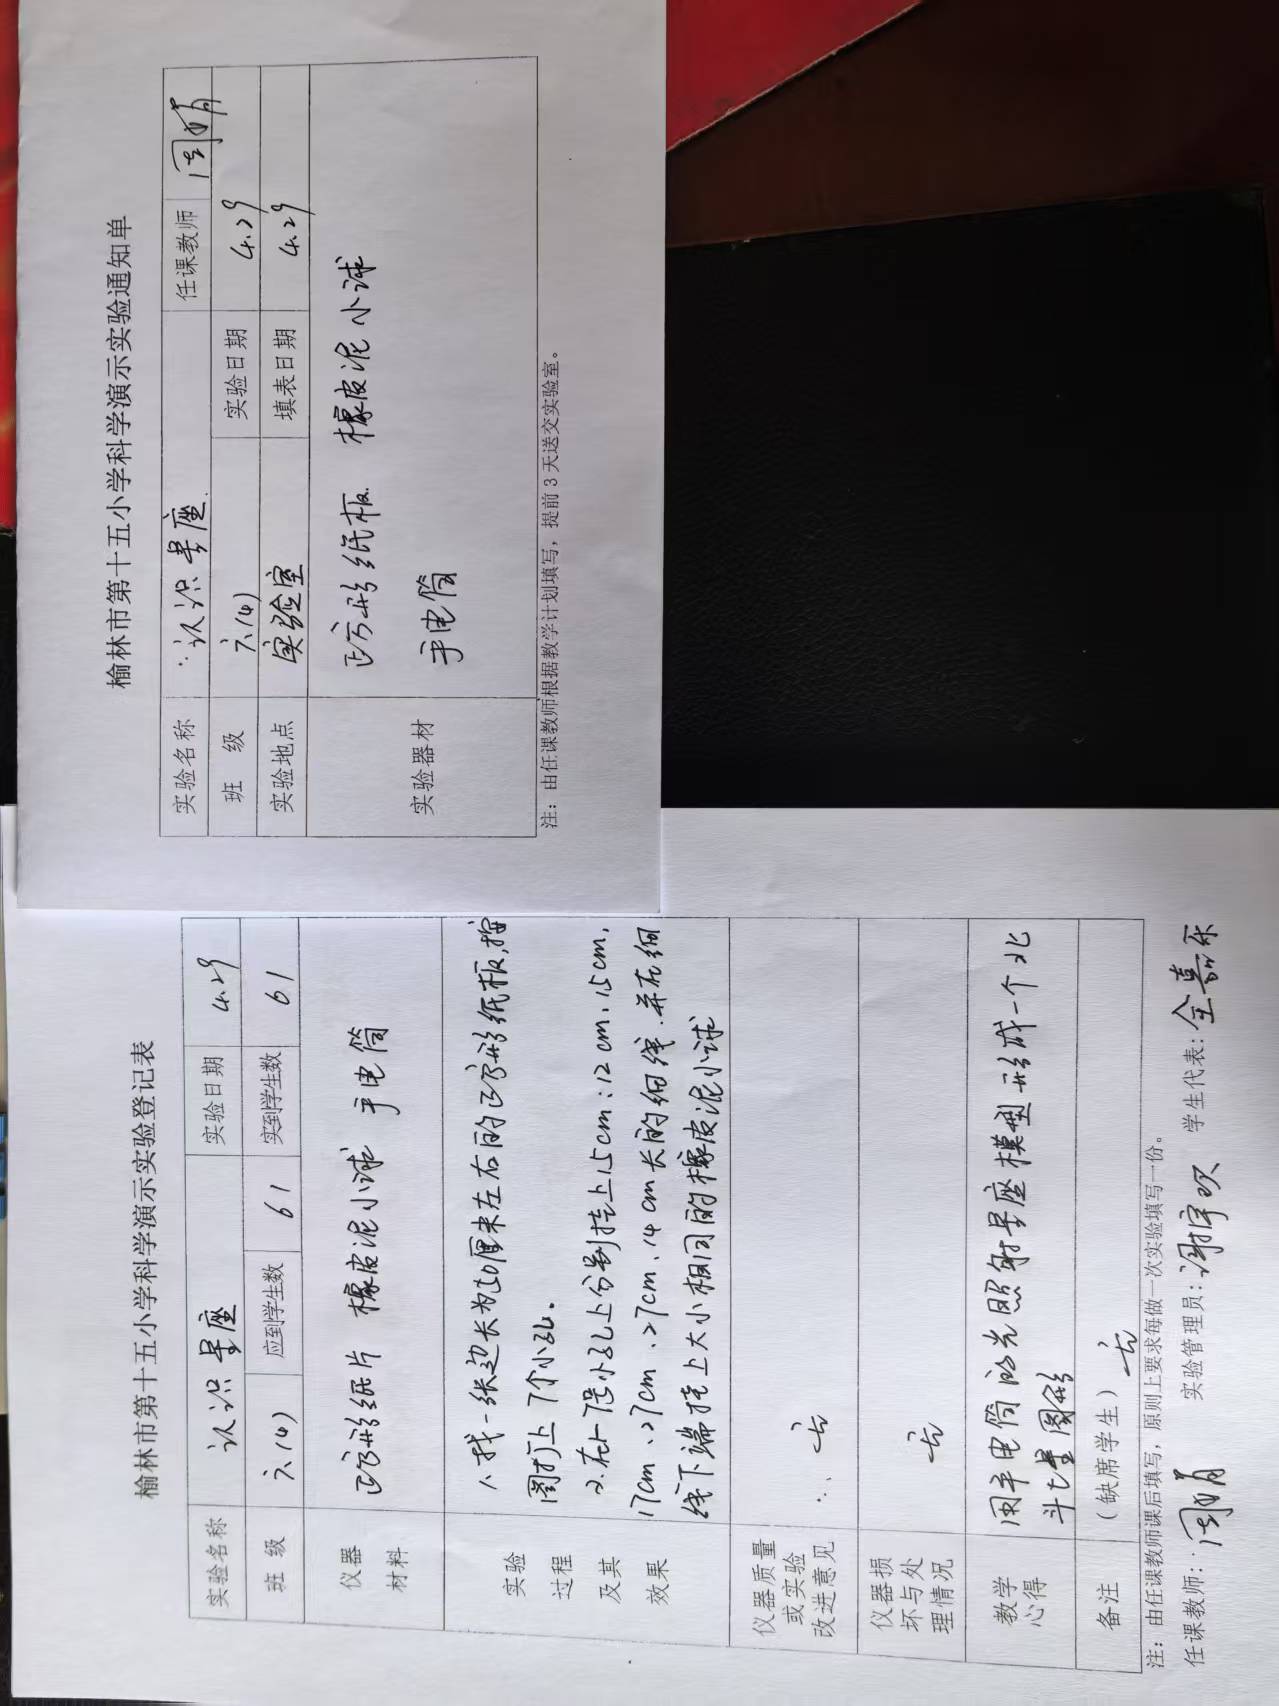 榆林市第十五小学科学演示实验通知单
实验名称 认识星座 任课教师 周娟
班 级 六(4) 实验日期 4.29
实验地点 实验室 填表日期 4.29
实验器材
正方形纸板 橡皮泥小球
手电筒
注：由任课教师根据教学计划填写，提前3天送交实验室。
榆林市第十五小学科学演示实验登记表
实验名称 认识星座 实验日期 4.29
班 级 六(4) 应到学生数 61 实到学生数 61
仪器
材料
正方形纸片 橡皮泥小球 手电筒
实验
过程
及其
效果
1、找一张边长为30厘米左右的正方形纸板,按
图打上7个小孔。
2.在7个小孔上分别挂上15cm:12cm.15cm,
17cm、27cm、27cm、14cm长的细线.并在细
线下端挂上大小相同的橡皮泥小球
仪器质量
或实验
改进意见
无
仪器损
坏与处
理情况
无
教学
心得
用手电筒的光照射星座模型形成一个北
斗七星图形
备注 （缺席学生） 无
注：由任课教师课后填写，原则上要求每做一次实验填写一份。
任课教师： 周娟 实验管理员：谢宇欢 学生代表：全嘉乐